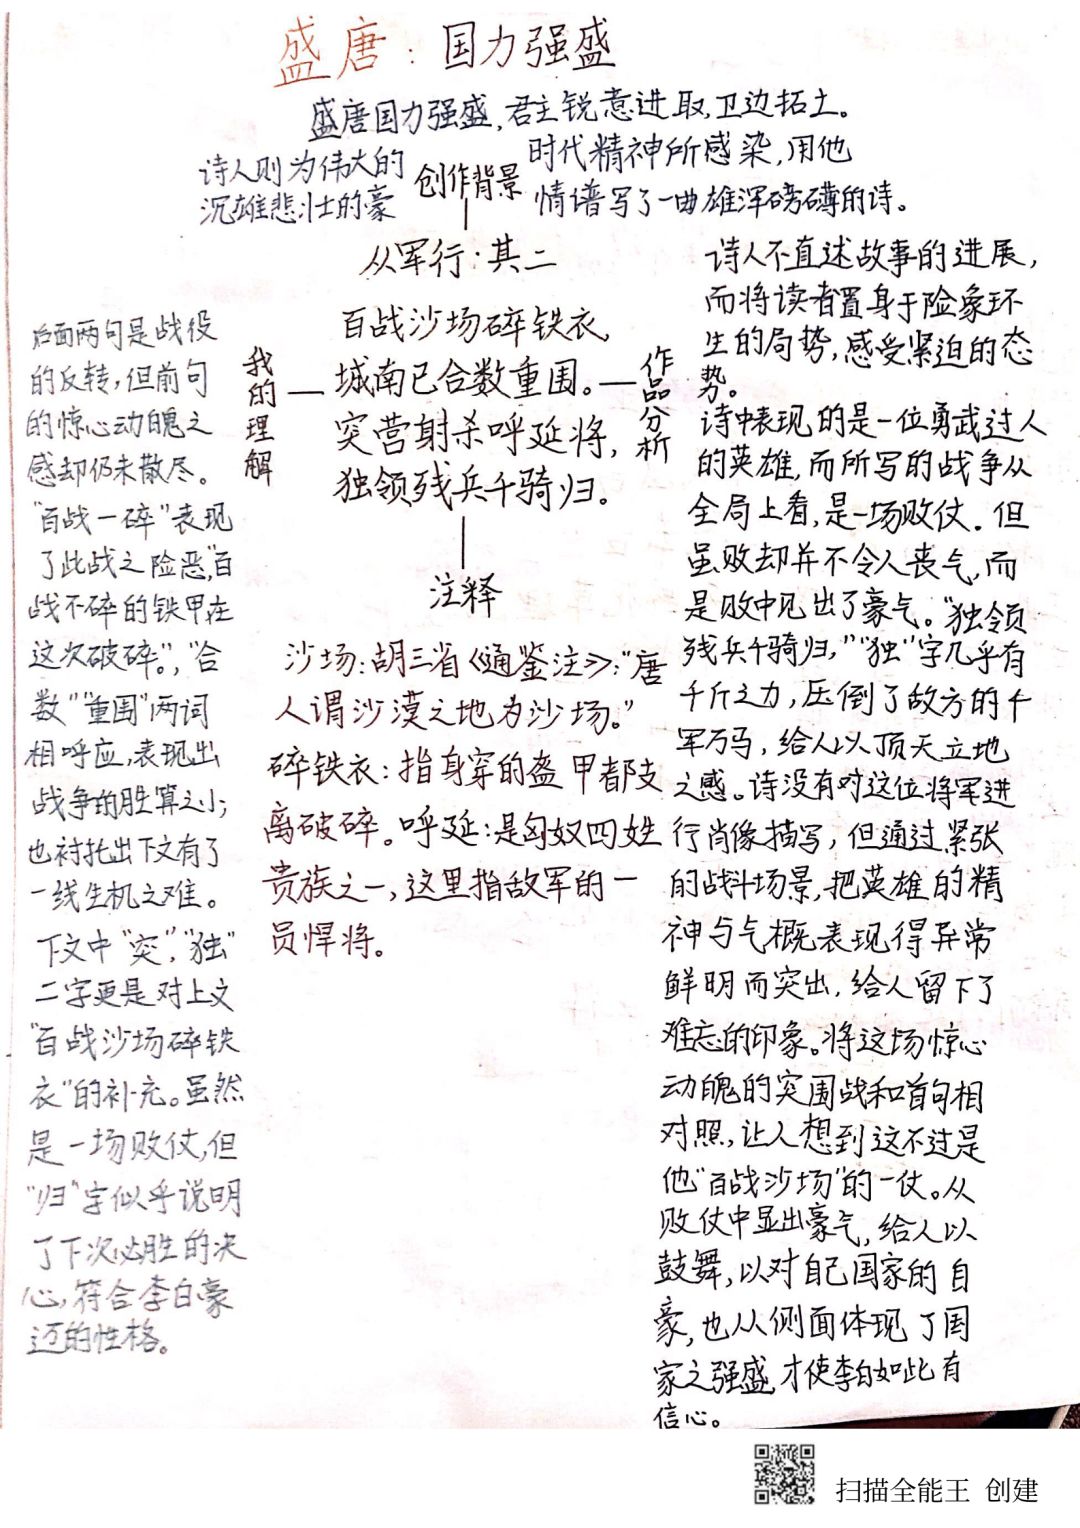 盛唐：国力强盛
盛唐国力强盛，君主锐意进取，卫边拓土。
诗人则为伟大的
沉雄悲壮的豪
创作背景
时代精神所感染，用他
情谱写了一曲雄浑磅礴的诗。
从军行：其二
百战沙场碎铁衣，
城南已合数重围。
突营射杀呼延将，
独领残兵千骑归。
我的理解
后面两句是战役
的反转，但前句
的惊心动魄之
感却仍未散尽。
“百战一碎”表现
了此战之险恶，“百
战不碎的铁甲在
这次破碎。”，“合
数”“重围”两词
相呼应，表现出
战争的胜算之小；
也衬托出下文有了
一线生机之难。
下文中“突”，“独”
二字更是对上文
“百战沙场碎铁
衣”的补充。虽然
是一场败仗，但
“归”字似乎说明
了下次必胜的决
心，符合李白豪
迈的性格。
注释
沙场：胡三省《通鉴注》：“唐
人谓沙漠之地为沙场。”
碎铁衣：指身穿的盔甲都支
离破碎。呼延：是匈奴四姓
贵族之一，这里指敌军的一
员悍将。
作品分析
诗人不直述故事的进展，
而将读者置身于险象环
生的局势，感受紧迫的态
势。
诗中表现的是一位勇武过人
的英雄，而所写的战争从
全局上看，是一场败仗。但
虽败却并不令人丧气，而
是败中见出了豪气。“独领
残兵千骑归，”“独”字几乎有
千斤之力，压倒了敌方的千
军万马，给人以顶天立地
之感。诗没有对这位将军进
行肖像描写，但通过紧张
的战斗场景，把英雄的精
神与气概表现得异常
鲜明而突出，给人留下了
难忘的印象。将这场惊心
动魄的突围战和首句相
对照，让人想到这不过是
他“百战沙场”的一仗。从
败仗中显出豪气，给人以
鼓舞，以对自己国家的自
豪，也从侧面体现了国
家之强盛，才使李白如此有
信心。
扫描全能王 创建